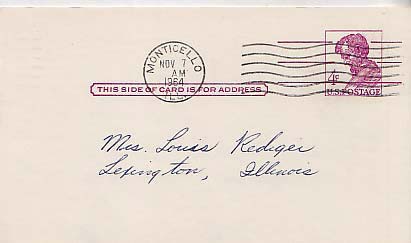 MONTICELLO
NOV 7
AM
1964
ILL.
4¢
U.S. POSTAGE
THIS SIDE OF CARD IS FOR ADDRESS
Mrs. Louis Rediger
Lexington, Illinois